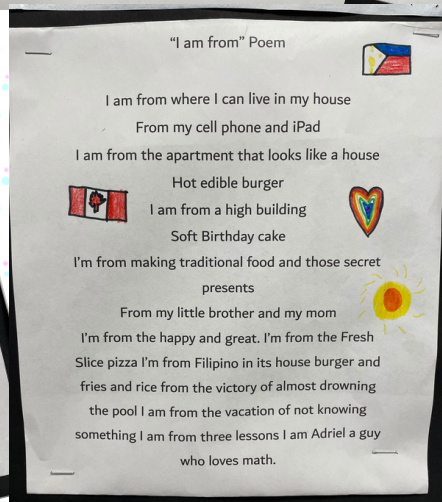 “I am from” Poem
I am from where I can live in my house
From my cell phone and iPad
I am from the apartment that looks like a house
Hot edible burger
I am from a high building
Soft Birthday cake
I'm from making traditional food and those secret
presents
From my little brother and my mom
I'm from the happy and great. I'm from the Fresh
Slice pizza I'm from Filipino in its house burger and
fries and rice from the victory of almost drowning
the pool I am from the vacation of not knowing
something I am from three lessons I am Adriel a guy
who loves math.